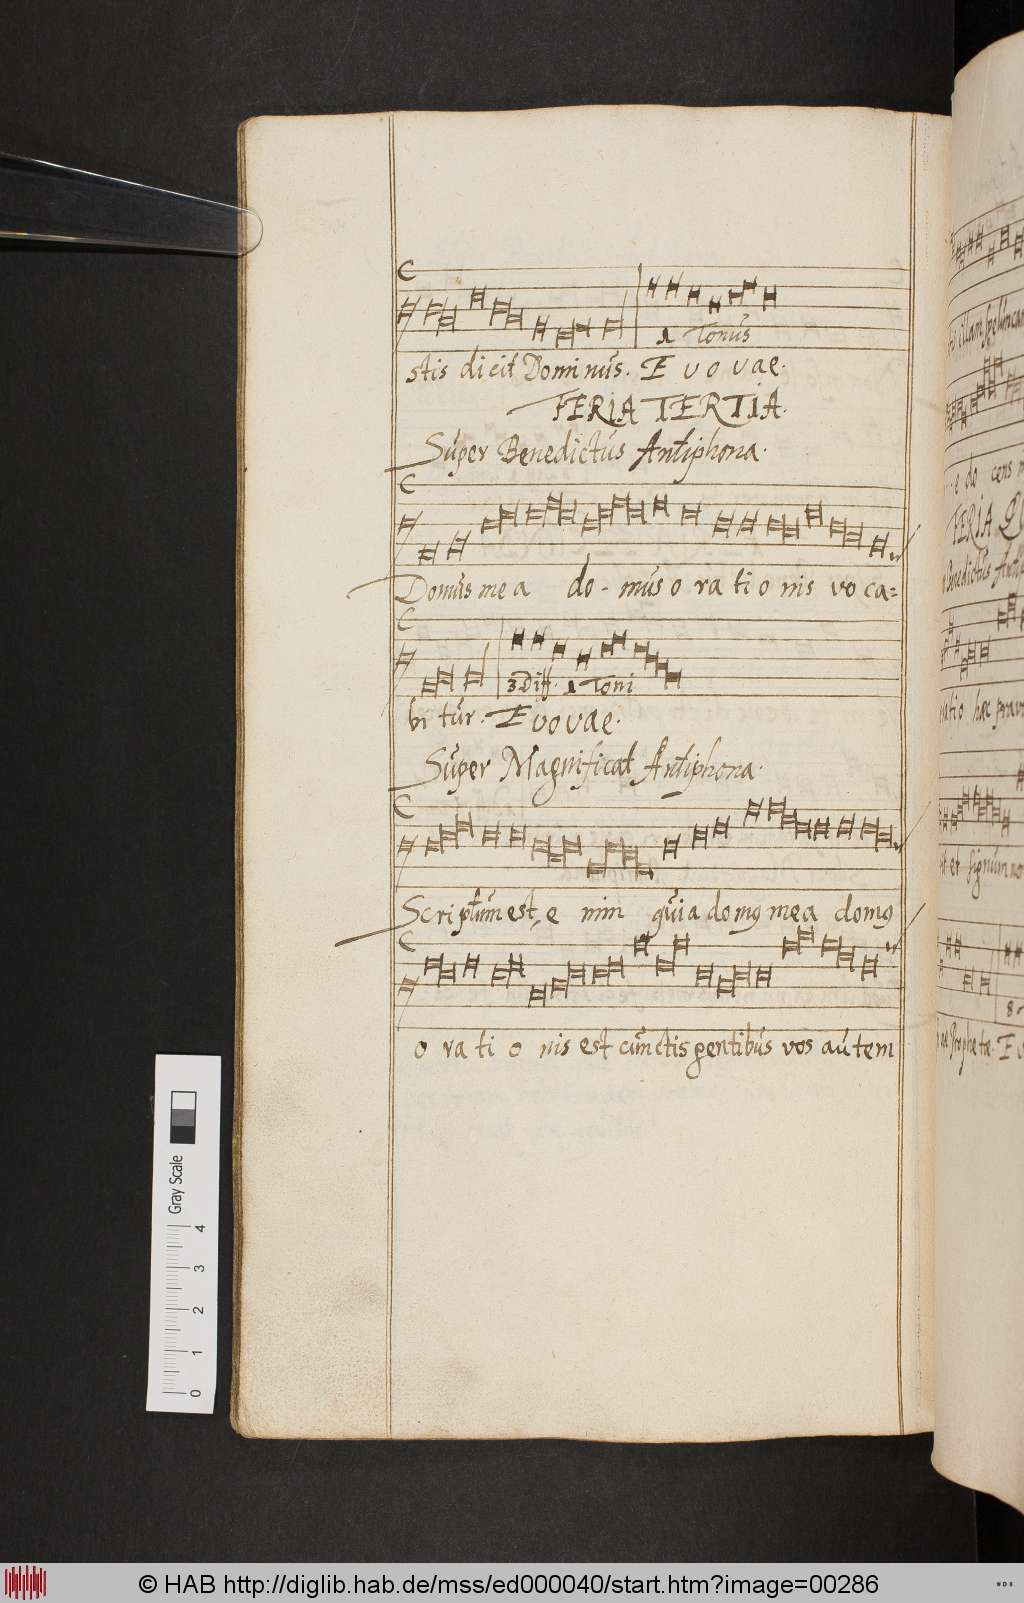 1 Tonus
stis dicit Dominus. E v o v a e.
FERIA TERTIA.
Super Benedictus Antiphona.
Domus me a do - mus o ra ti o nis vo ca=
3 Diff. 1 Toni
bi tur. E v o v a e.
Super Magnificat Antiphona.
Scriptum est, e nim quia domus mea domus
o ra ti o nis est cunctis gentibus vos autem
illam speluncam
e do cens
FERIA
Benedictus
ratio hæc prava
et signum no
8
Prophetæ. E v
Gray Scale
0 1 2 3 4
© HAB http://diglib.hab.de/mss/ed000040/start.htm?image=00286